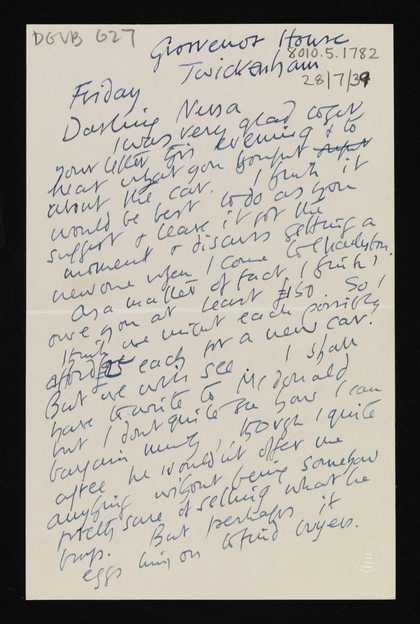 DGVB G27
Grosvenor House
8010.5.1782
Twickenham
28/7/39
Friday
Darling Nessa
I was very glad to get
your letter this evening & to
hear what you thought
about the car. I think it
would be best to do as you
suggest & leave it for the
moment & discuss getting a
new one when I come to Charleston.
As a matter of fact, I think I
owe you at least £150. So I
think we might each possibly
afford each for a new car.
But we will see. I shall
have to write to McDonald
but I don't quite see how I can
bargain much, though I quite
agree he wouldn't offer me
anything without being somehow
pretty sure of selling what he
buys. But perhaps it
eggs him on to find buyers.